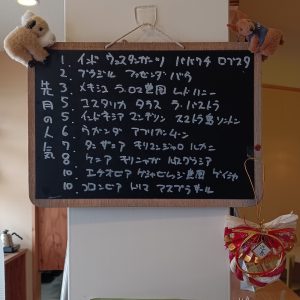 先月の人気
1. インド ウエスタンガーツ ババウチ ロブスタ
2. ブラジル ファゼンダ バウ
3. メキシコ ラ・ロス農園 レッドハニー
5. コスタリカ タラス ラ・パストラ
5. インドネシア マンデリン スマトラ島リントン
6. ウガンダ アフリカンムーン
7. タンザニア キリマンジャロ ルカニ
8. ケニア キリニャガ
10. エチオピア ゲシャビレッジ農園 ゲイシャ
10. コロンビア トリマ アスプラデール